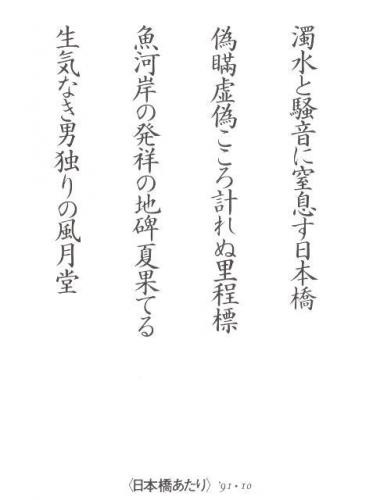 濁水と騒音に窒息す日本橋
偽瞞虚偽こころ計れぬ里程標
魚河岸の発祥の地碑夏果てる
生気なき男独りの風月堂
〈日本橋あたり〉'91・10